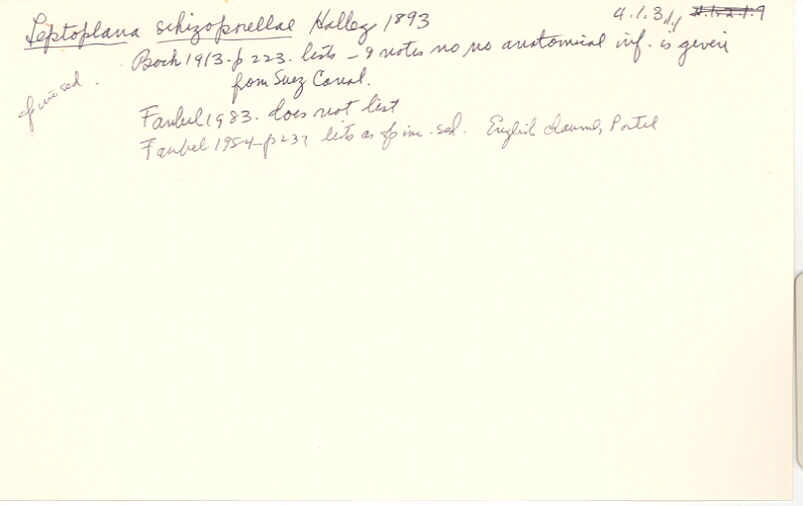 Leptoplana schizoporellae Hallez 1893
4.1.3
Bock 1913 - p 223. lists - & notes no no anatomical inf. is given
from Suez Canal.
sp inc sed.
Faubel 1983. does not list
Faubel 1984 - p 237 lists as sp inc. sed. English Channel, Portel